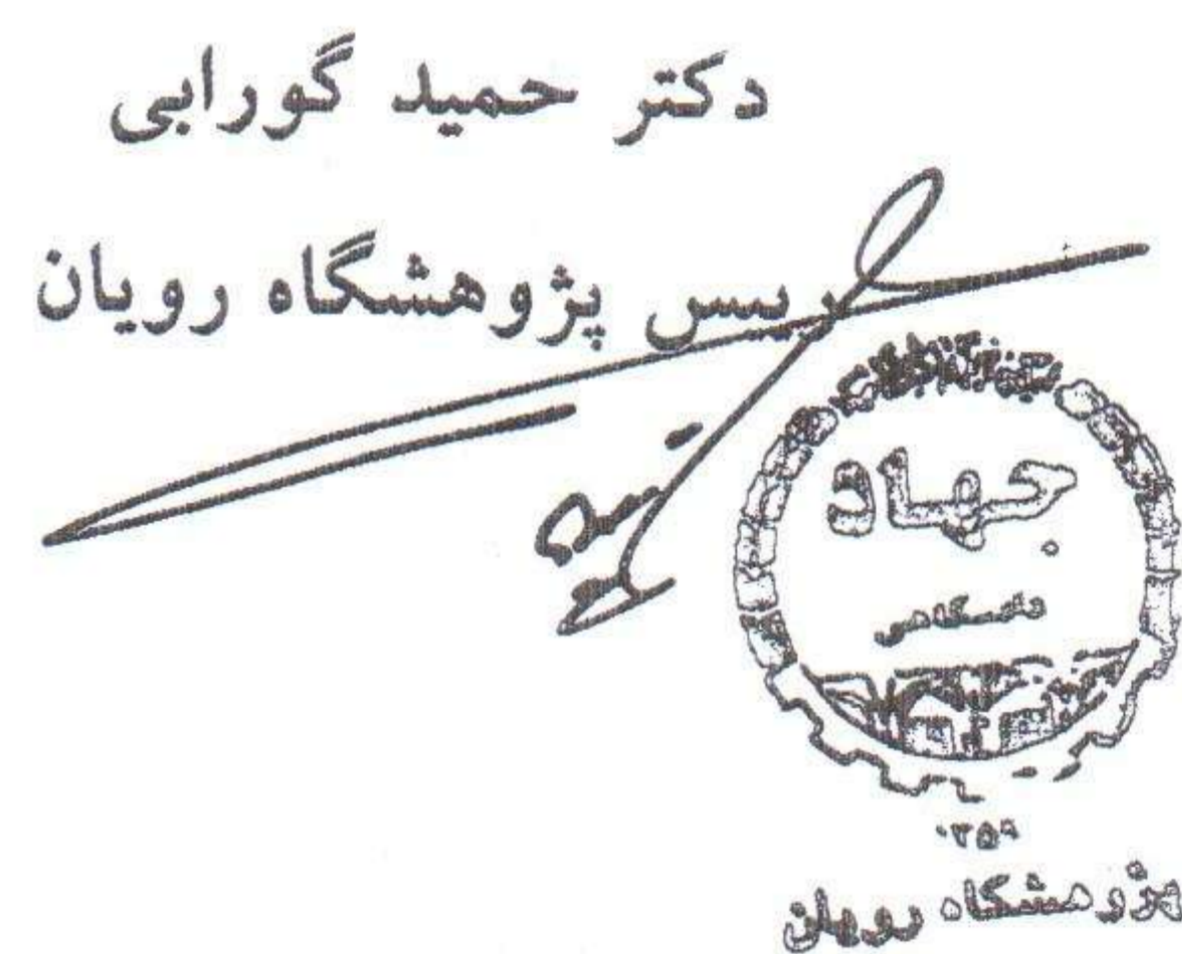 دکتر حمید گورابی
رییس پژوهشگاه رویان
جهاد
دانشگاهی
۰۲۵۹
پژوهشگاه رویان